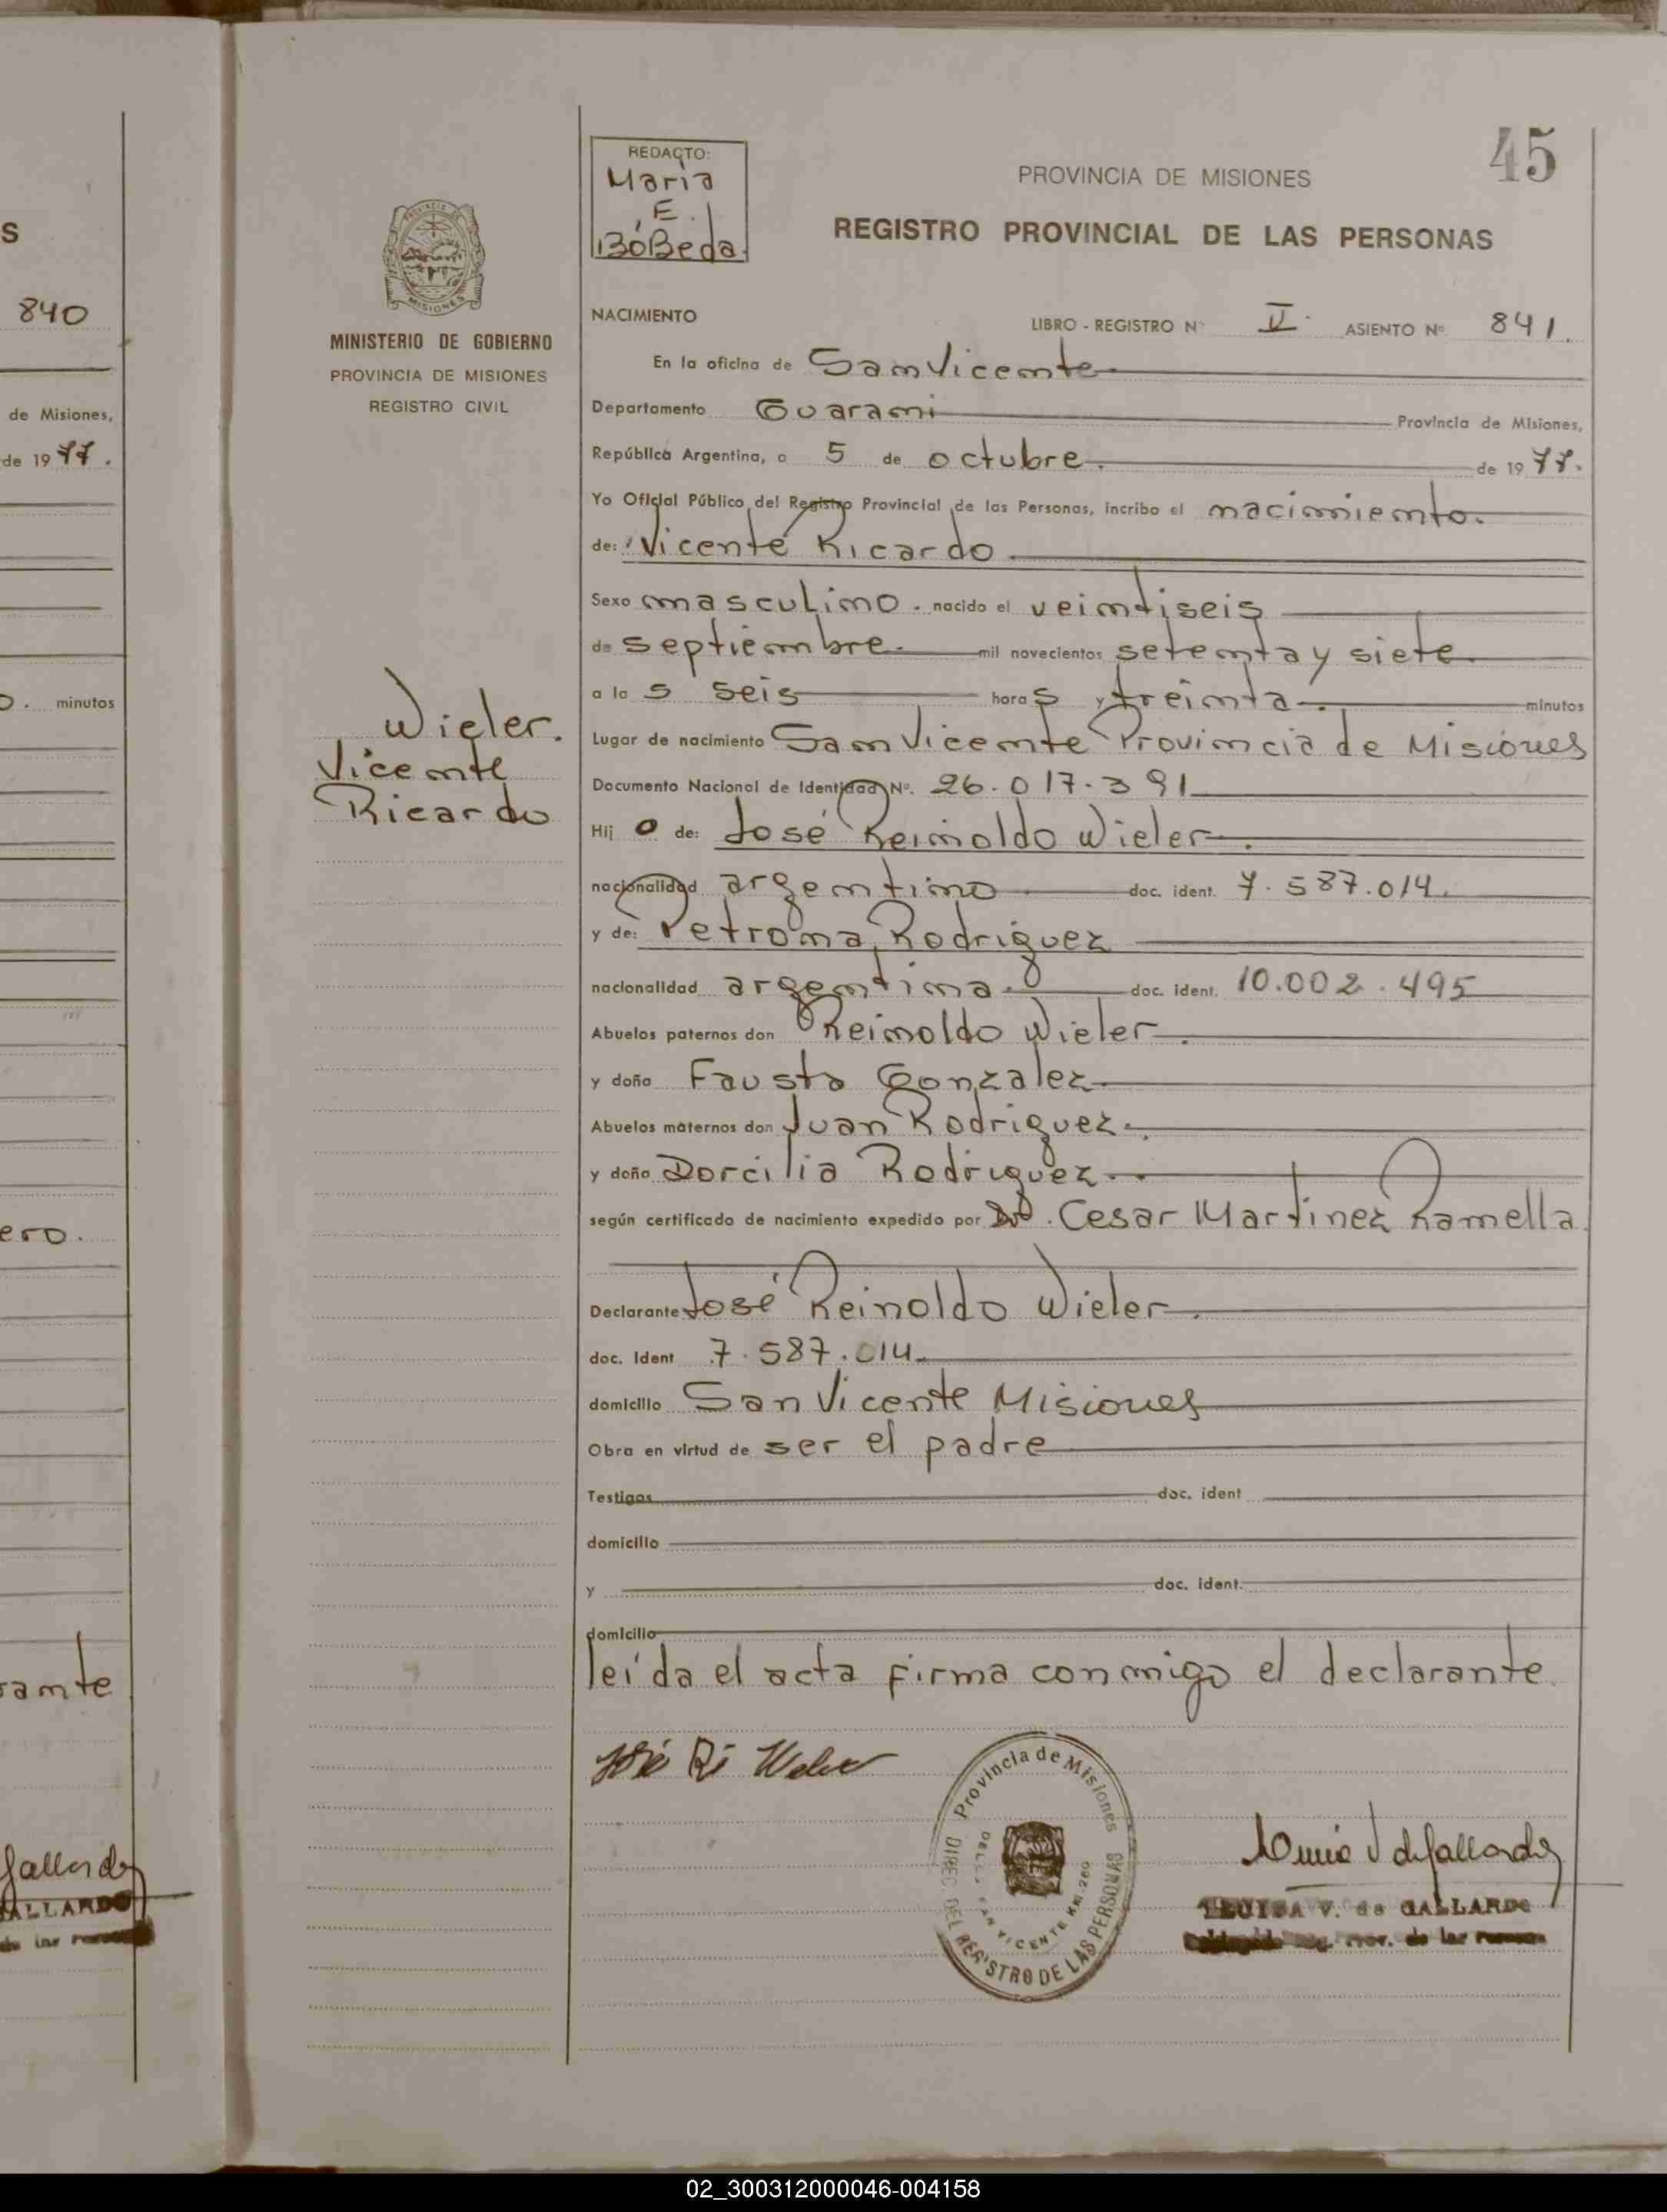 S
840
de Misiones,
de 1977.
0. minutos
ero.
ramte
Gallardo
GALLARDO
de las
45
REDACTO:
María
E.
BóBeda.
PROVINCIA DE MISIONES
REGISTRO PROVINCIAL DE LAS PERSONAS
MISIONES
MINISTERIO DE GOBIERNO
PROVINCIA DE MISIONES
REGISTRO CIVIL
NACIMIENTO
LIBRO - REGISTRO Nº II. ASIENTO Nº. 841.
En la oficina de San Vicente
Departamento Guarani Provincia de Misiones,
República Argentina, a 5 de octubre. de 1977.
Yo Oficial Público del Registro Provincial de las Personas, incribo el nacimiento.
de: Vicente Ricardo
Sexo masculino. nacido el veintiseis
de septiembre. mil novecientos setenta y siete
a las seis horas y treinta. minutos
Lugar de nacimiento San Vicente Provincia de Misiones
Documento Nacional de Identidad Nº. 26.017.391
Hijo de: José Reinoldo Wieler.
nacionalidad argentino doc. ident. 7.587.014.
y de: Petrona Rodriguez
nacionalidad argentina. doc. ident. 10.002.495
Abuelos paternos don Reinoldo Wieler.
y doña Fausta Gonzalez
Abuelos maternos don Juan Rodriguez.
y doña Dorcilia Rodriguez..
según certificado de nacimiento expedido por Dr. Cesar Martinez Ramella.
Declarante José Reinoldo Wieler.
doc. Ident 7.587.014.
domicilio San Vicente Misiones
Obra en virtud de ser el padre
Testigos doc. ident
domicilio
y doc. ident.
domicilio
leída el acta firma conmigo el declarante.
Wieler.
Vicente
Ricardo
José Rei Wieler
Provincia de Misiones
DIREC. DEL REGISTRO DE LAS PERSONAS
SAN VICENTE KM.260
V de Gallardo
LUISA V. de GALLARDO
Prov. de las Personas
02_300312000046-004158